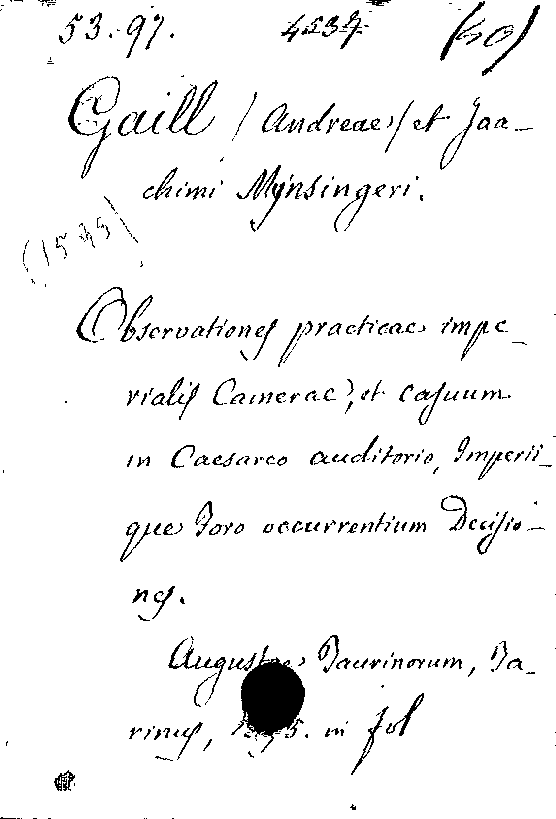 53.97. 4537 (40)
Gaill (Andreae) et Joa-
chimi Mynsingeri.
(1595)
Observationes practicae impe-
rialis Camerae, et casuum
in Caesareo auditorio, Imperii-
que Foro occurrentium Decisio-
nes.
Augustae Taurinorum, Ta-
rinus, 1595. in fol